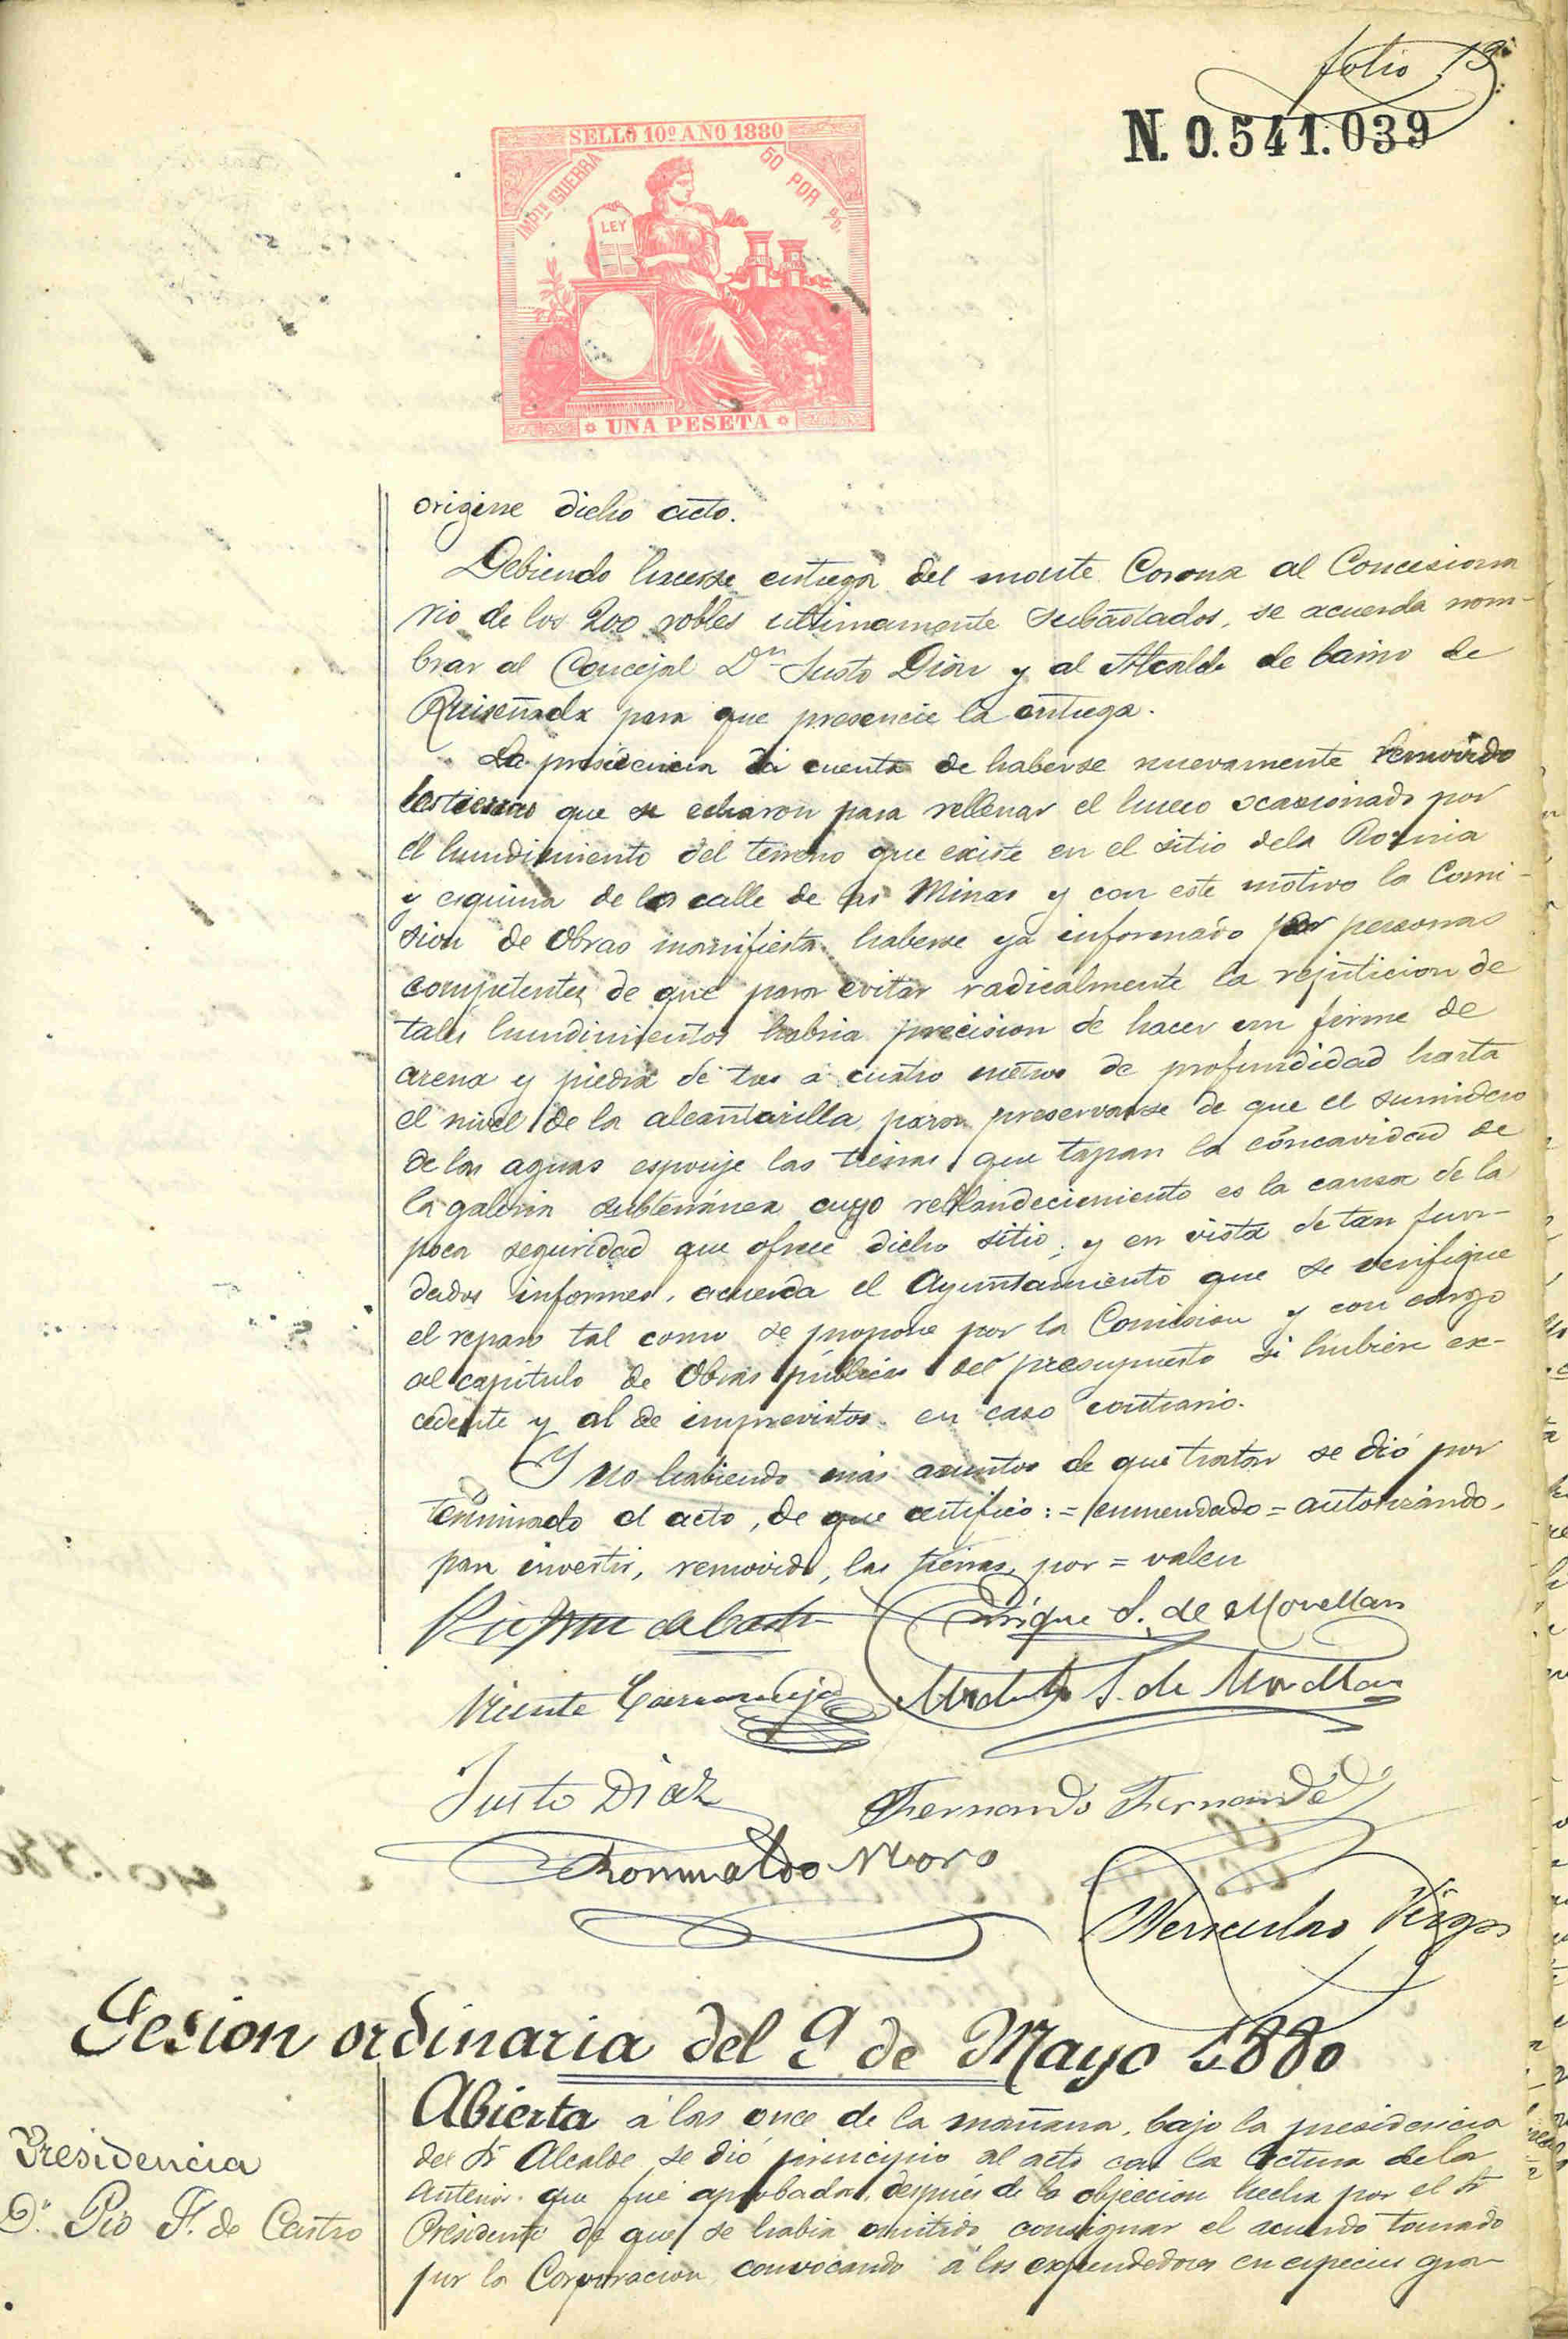 folio 19
N. 0.541.039
SELLO 10º AÑO 1880
IMPTO GUERRA
50 POR %
LEY
UNA PESETA
origine dicho acto.
Debiendo hacerse entrega del monte Corona al Concesiona
rio de los 200 robles ultimamente subastados, se acuerda nom-
brar al Concejal Dn Justo Diaz y al Alcalde de barrio de
Ruiseñada para que presencie la entrega.
La presidencia dá cuenta de haberse nuevamente removido
las tierras que se echaron para rellenar el hueco ocasionado por
el hundimiento del terreno que existe en el sitio dela
y esquina de la calle de las Minas y con este motivo la Comi-
sion de Obras manifiesta haberse ya informado por personas
competentes de que para evitar radicalmente la repeticion de
tales hundimientos habria precision de hacer un firme de
arena y piedra de tres á cuatro metros de profundidad hasta
el nivel de la alcantarilla, para preservarse de que el sumidero
de las aguas esponje las tierras que tapan la concavidad de
la galeria subterránea cuyo reblandecimiento es la causa de la
poca seguridad que ofrece dicho sitio; y en vista de tan fun-
dados informes, acuerda el Ayuntamiento que se verifique
el reparo tal como se propone por la Comision y con cargo
al capitulo de Obras públicas del presupuesto si hubiere ex-
cedente y al de imprevistos en caso contrario.
Y no habiendo más asuntos de que tratar se dió por
terminado el acto, de que certifico: = enmendado = autorizando,
para invertir, removido, las tierras, por = valen
Pio Frnz de Castro
Enrique S. de Movellan
Vicente
Modesto S. de Movellan
Justo Diaz
Fernando Fernandez
Romualdo Moro
Herculano Vega
Sesion ordinaria del 9 de Mayo 1880
Presidencia
Dn. Pio F. de Castro
Abierta á las once de la mañana, bajo la presidencia
del Sr Alcalde se dió principio al acto con la lectura dela
anterior que fué aprobada, después de la objeccion hecha por el Sr
Presidente de que se habia omitido consignar el acuerdo tomado
por la Corporacion convocando á los expendedores en especies gra-